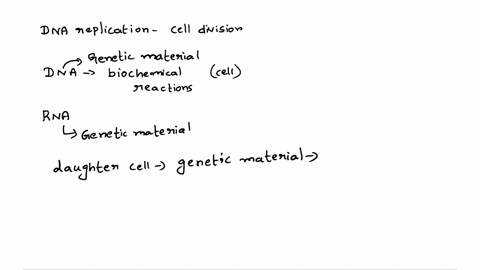 DNA replication - cell division
Genetic material
DNA → biochemical (cell)
reactions
RNA
↳ Genetic material
daughter cell → genetic material →